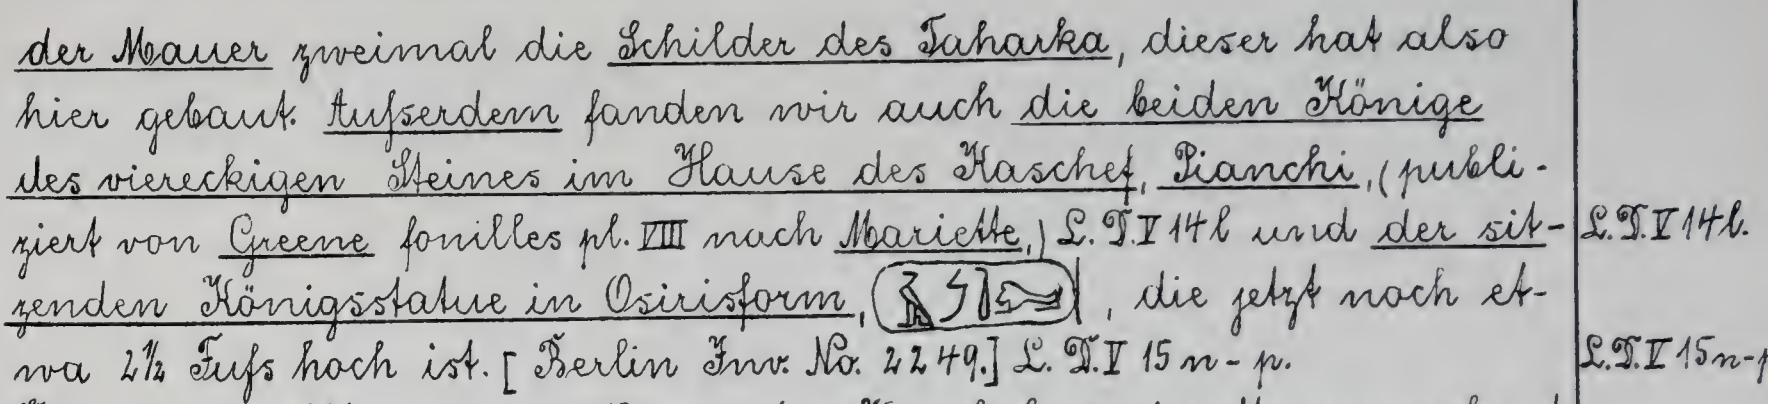 der Mauer zweimal die Schilder des Taharka, dieser hat also
hier gebaut. Aufserdem fanden wir auch die beiden Könige
des viereckigen Steines im Hause des Kaschef, Pianchi, (publi-
ziert von Greene fouilles pl. VIII nach Mariette,) L. D. V 14 l und der sit-
L. D. V 14 l.
zenden Königsstatue in Osirisform, , die jetzt noch et-
wa 2½ Fufs hoch ist. [Berlin Inv. No. 2249.] L. D. V 15 n-p.
L. D. V 15 n-p